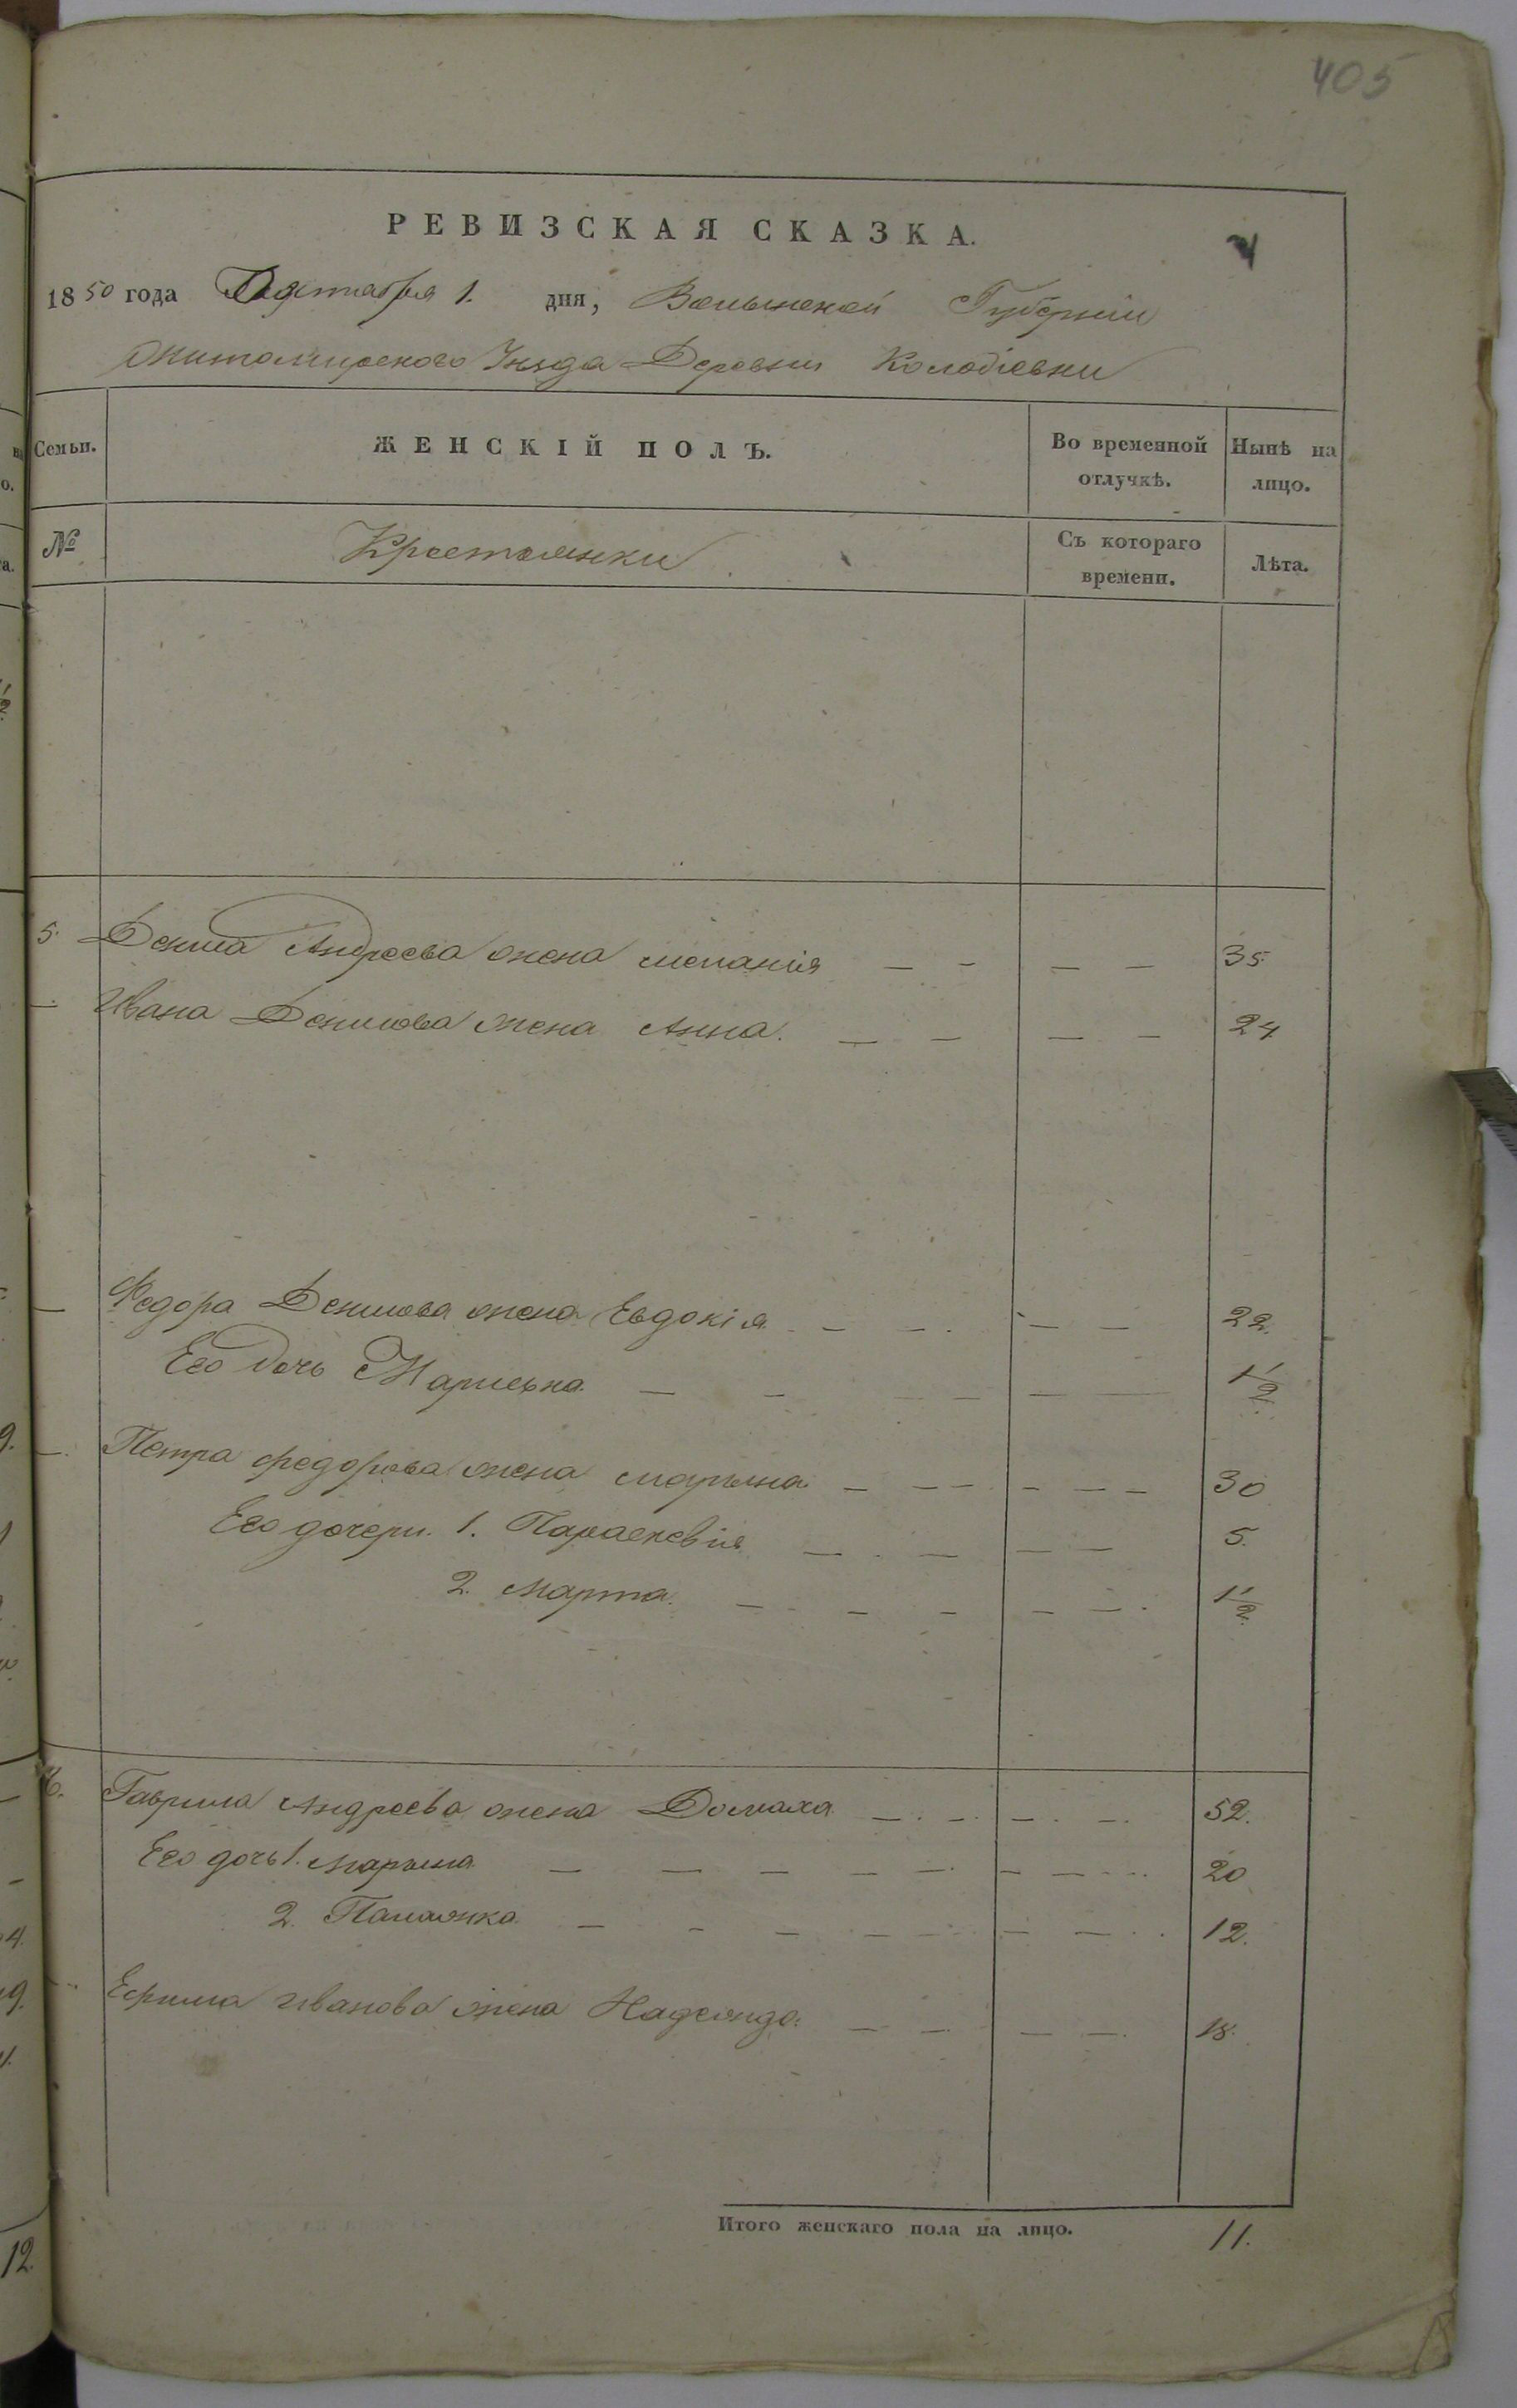 405
РЕВИЗСКАЯ СКАЗКА.
1850 года Октября 1. дня, Волынской Губерніи
Житомирского Уезда Деревни Колодіевки
Семьи. ЖЕНСКІЙ ПОЛЪ. Во временной отлучкѣ. Нынѣ на лицо.
№ Крестьянки Съ котораго времени. Лѣта.
5. Денима Андреева жена Мелания — — — — 35.
— Ивана Денимова жена Анна. — — — — 24
— Федора Денимова жена Евдокія — — — — 22.
Его дочь Марисьна — — — — — 1 1/2
— Петра Федорова жена Марьяна — — — — — — 30
Его дочери. 1. Параскевия — — — — 5.
2. Марта. — — — — — 1 1/2
6. Гаврила Андреева жена Домаха — — — — 52.
Его дочь 1. Марьяна — — — — — — — 20
2. — — — — — — — 12.
Ефима Иванова жена — — — — 18.
Итого женскаго пола на лицо. 11.
12.